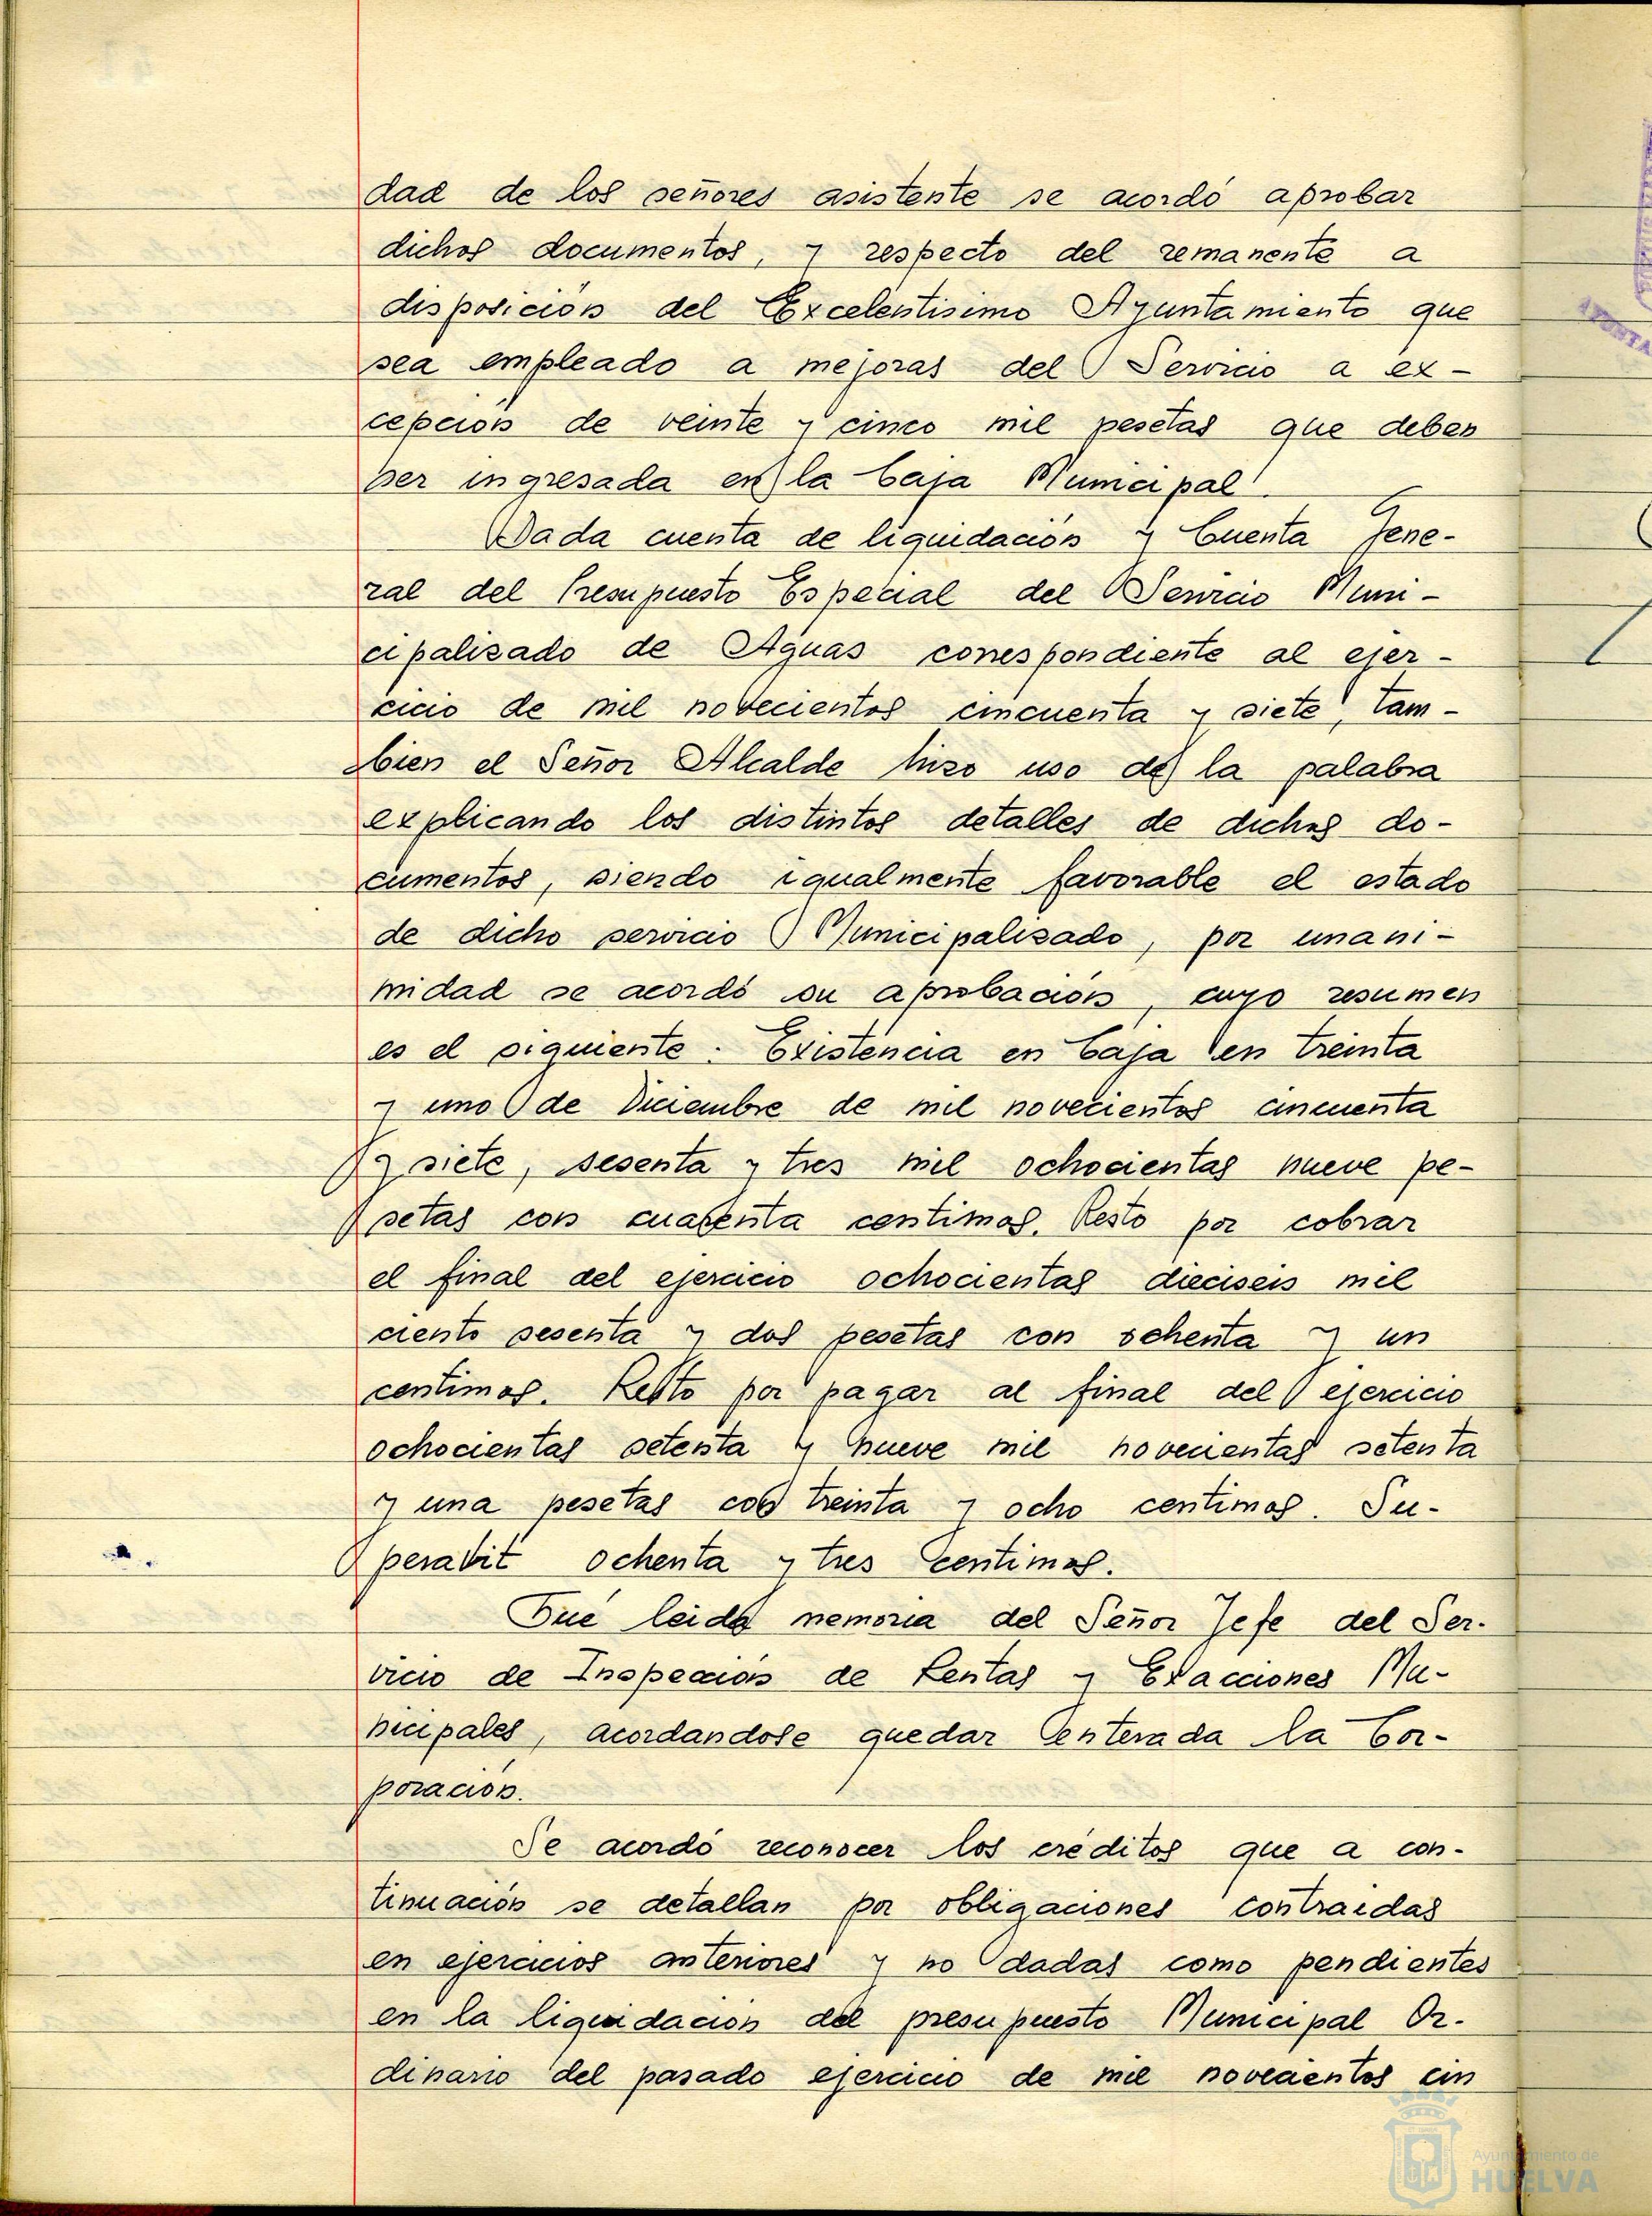 dad de los señores asistente se acordó aprobar
dichos documentos, y respecto del remanente a
disposición del Excelentisimo Ayuntamiento que
sea empleado a mejoras del Servicio a ex-
cepción de veinte y cinco mil pesetas que deben
ser ingresada en la Caja Municipal.
Dada cuenta de liquidación y Cuenta Gene-
ral del Presupuesto Especial del Servicio Muni-
cipalizado de Aguas correspondiente al ejer-
cicio de mil novecientos cincuenta y siete, tam-
bien el Señor Alcalde hizo uso de la palabra
explicando los distintos detalles de dichos do-
cumentos, siendo igualmente favorable el estado
de dicho servicio Municipalizado, por unani-
midad se acordó su aprobación, cuyo resumen
es el siguiente: Existencia en Caja en treinta
y uno de Diciembre de mil novecientos cincuenta
y siete, sesenta y tres mil ochocientas nueve pe-
setas con cuarenta centimos. Resto por cobrar
el final del ejercicio ochocientas dieciseis mil
ciento sesenta y dos pesetas con ochenta y un
centimos. Resto por pagar al final del ejercicio
ochocientas setenta y nueve mil novecientas setenta
y una pesetas con treinta y ocho centimos. Su-
peravit ochenta y tres centimos.
Fué leida memoria del Señor Jefe del Ser-
vicio de Inspección de Rentas y Exacciones Mu-
nicipales, acordandose quedar enterada la Cor-
poración.
Se acordó reconocer los créditos que a con-
tinuación se detallan por obligaciones contraidas
en ejercicios anteriores y no dadas como pendientes
en la liquidación del presupuesto Municipal Or-
dinario del pasado ejercicio de mil novecientos cin
AYUNTA
Ayuntamiento de
HUELVA